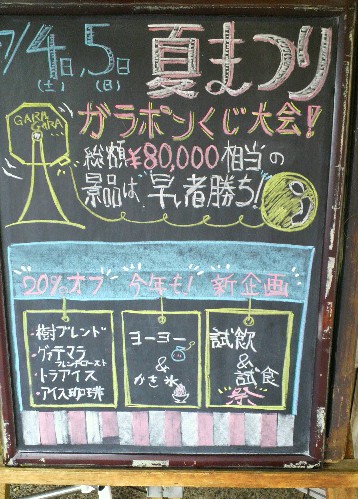 7/4日,5日 夏まつり
(土) (日)
GARA
GARA
ガラポンくじ大会!
総額¥80,000相当の
景品は早い者勝ち!
20%オフ 今年も! 新企画
・樹ブレンド
・グァテマラ
フレンチロースト
・トラアイス
・アイス珈琲
ヨーヨー
&
かき氷
試飲
&
試食
祭